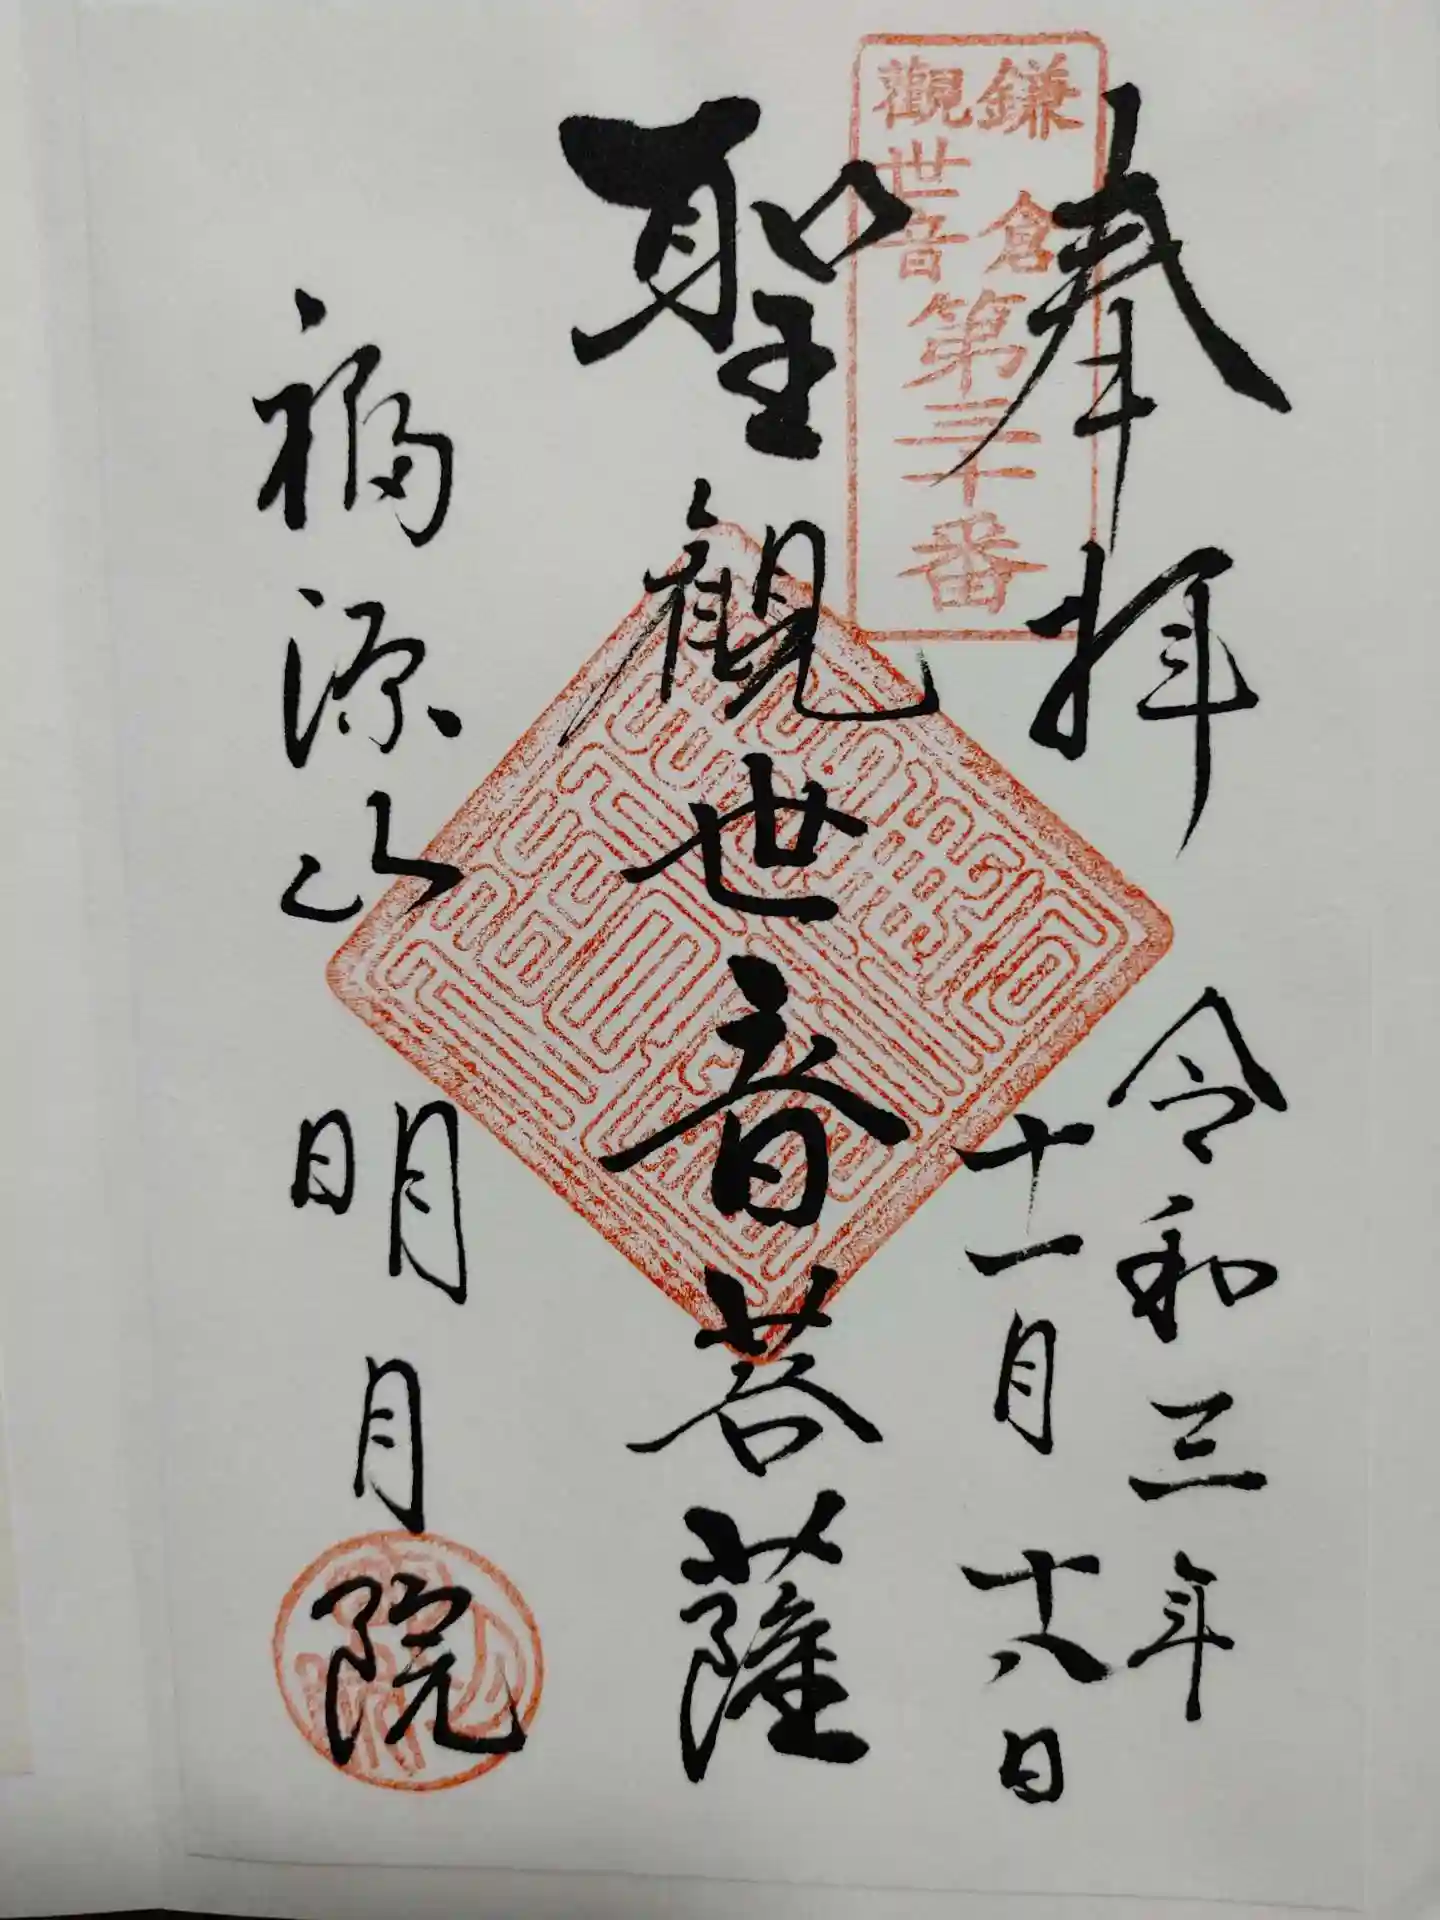 奉拝
令和三年
十一月十八日
鎌倉
觀世音
第三十番
聖観世音菩薩
福源山明月院